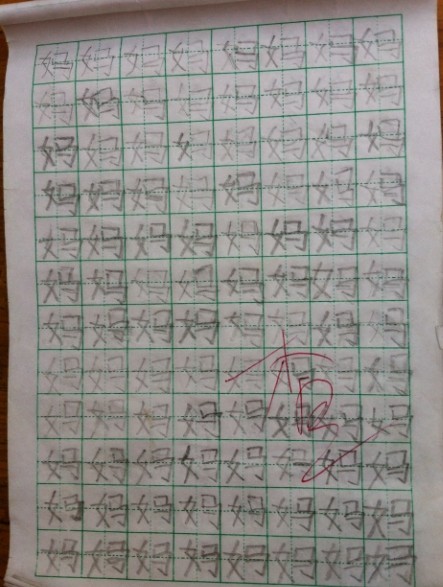 妈妈妈妈妈妈妈妈
妈妈妈妈妈妈妈妈
妈妈妈妈妈妈妈妈
妈妈妈妈妈妈妈妈
妈妈妈妈妈妈妈妈
妈妈妈妈妈妈妈妈
妈妈妈妈妈妈妈妈
妈妈妈妈妈妈妈妈
妈妈妈妈妈妈妈妈
妈妈妈妈妈妈妈妈
妈妈妈妈妈妈妈妈
妈妈妈妈妈妈妈妈